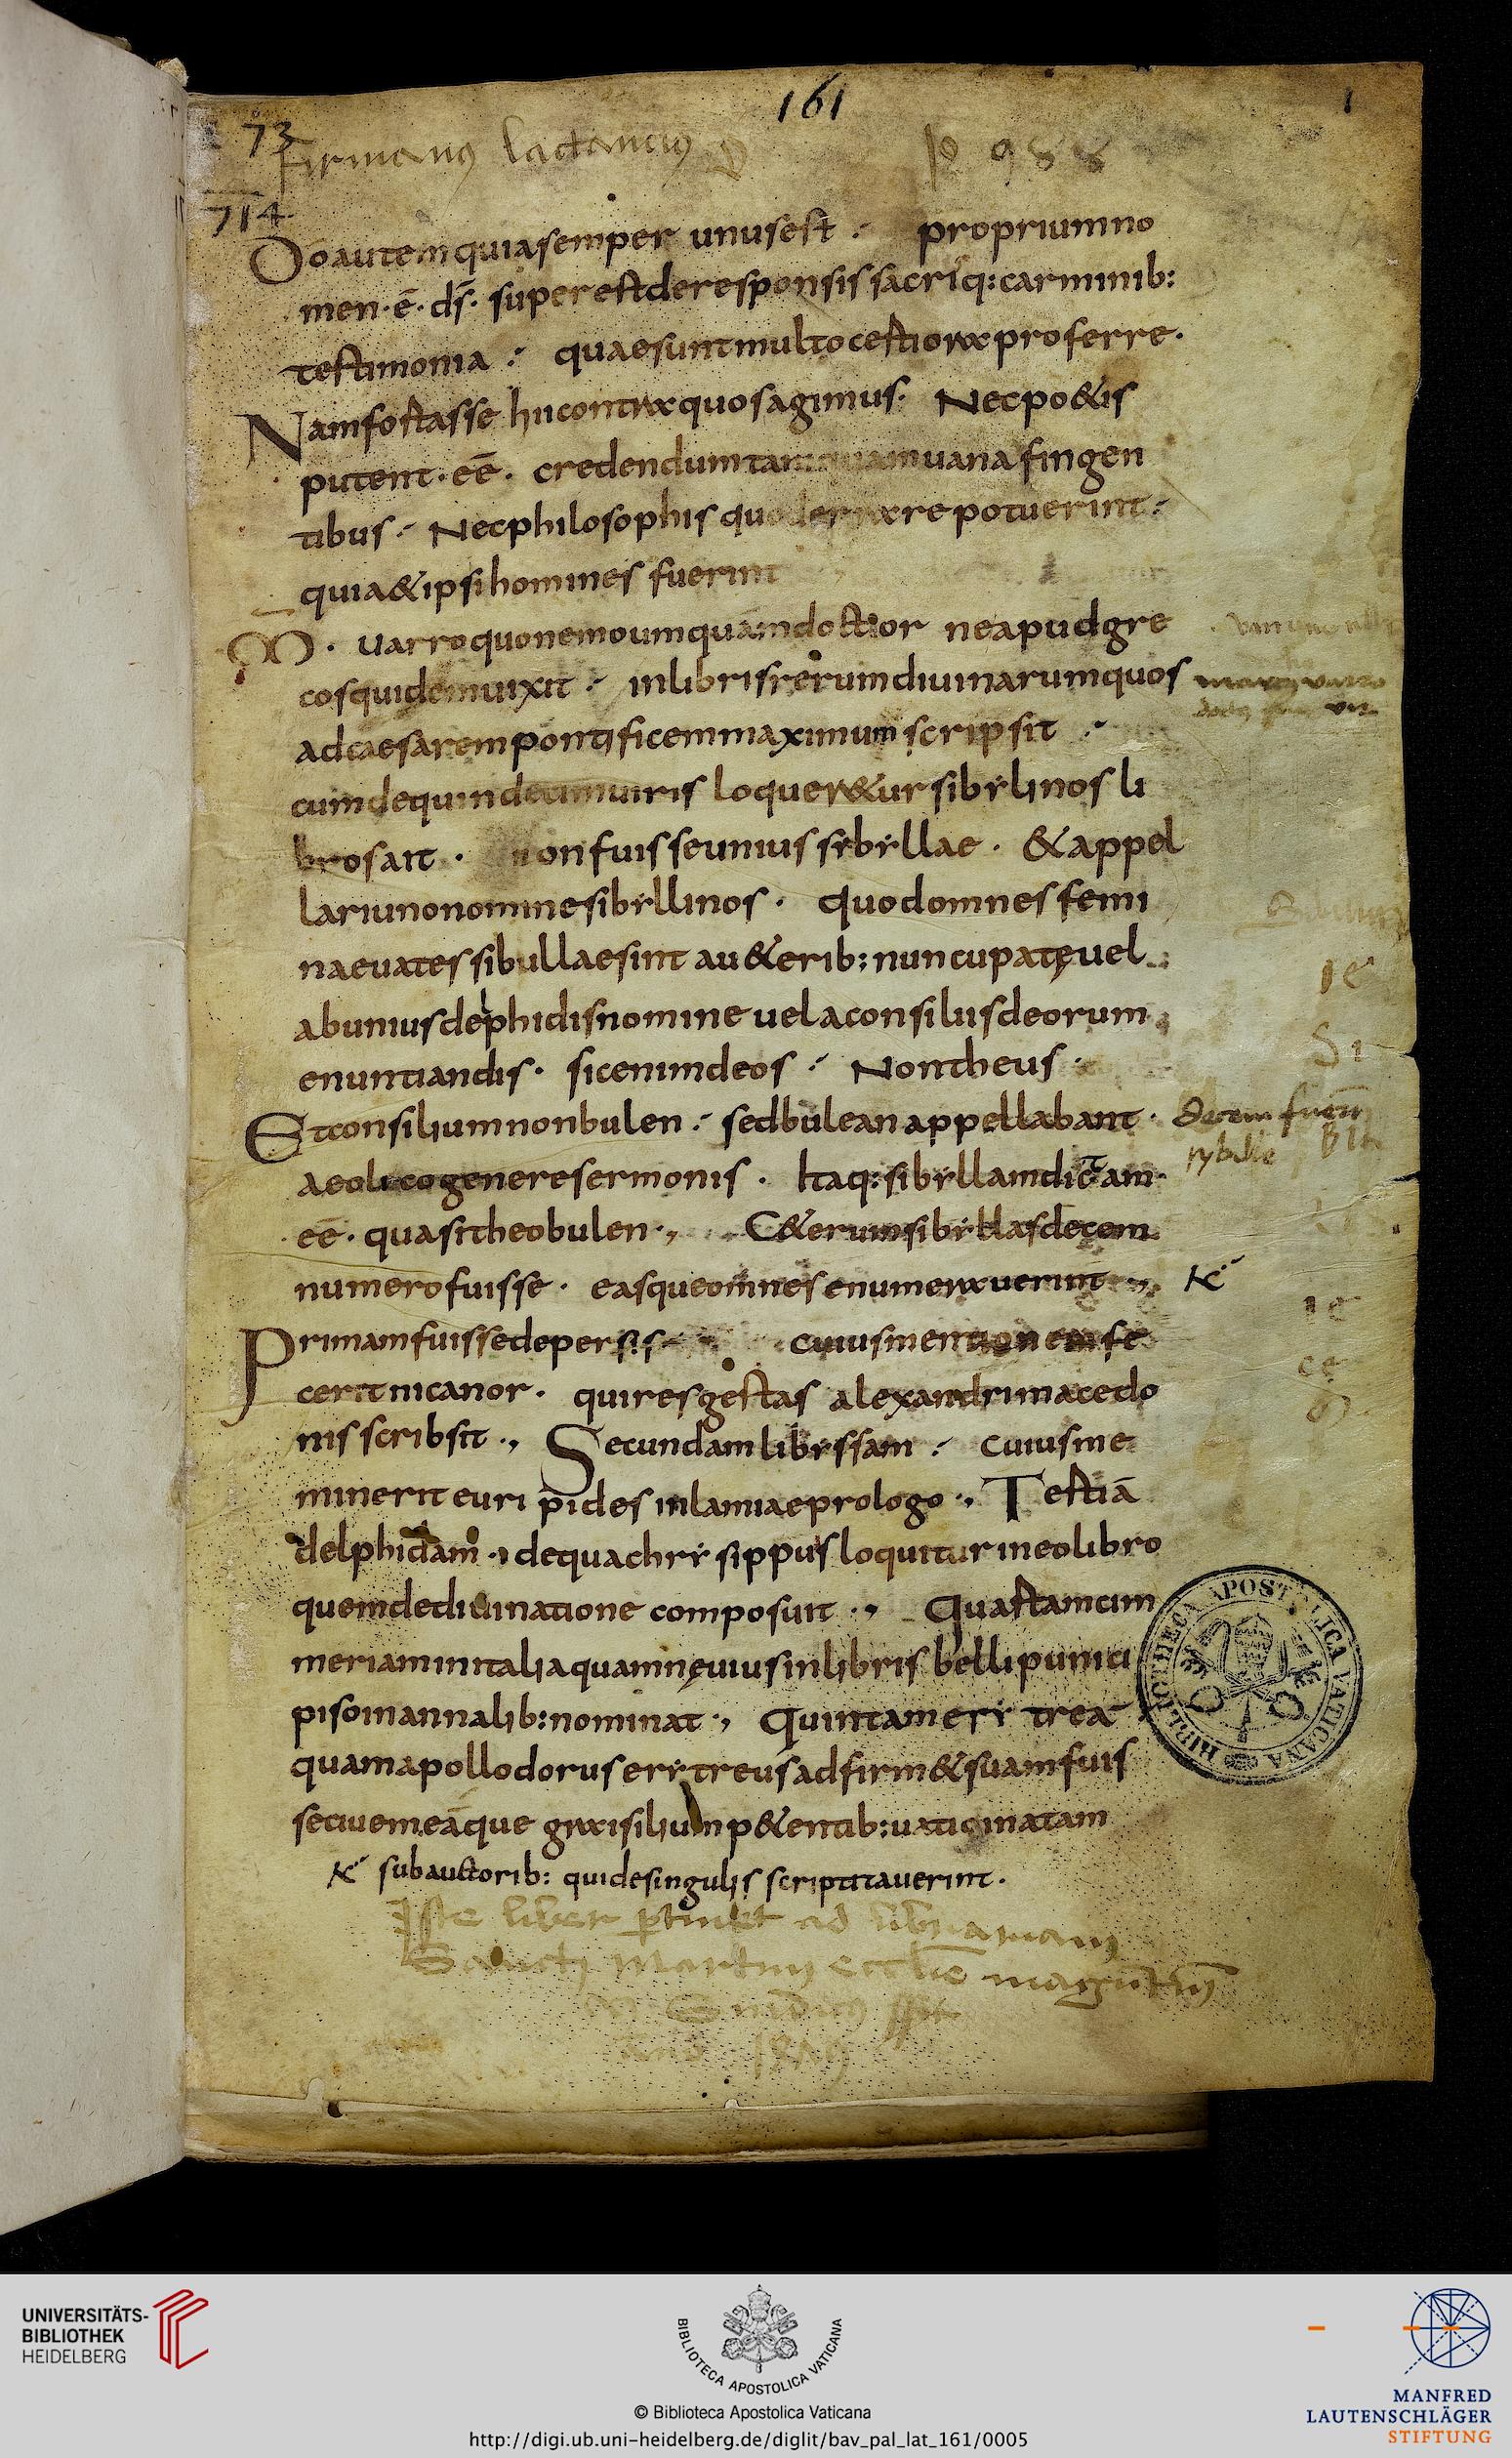 161
1
73
Firmianus lactancius
p 988
714
Do autem quia semper unus est · proprium no
men · ē · d̄s · super est de responsis sacrisq: carminib:
testimonia · quae sunt multo cestiora proferre ·
Nam fostasse hii contra quos agimus · Nec po&is
putent · eē · credendum tamquam uana fingen
tibus · Nec philosophis quod errare potuerint ·
quia & ipsi homines fuerint
M · uarro quo nemo umquam doctior ne apud gre
cos quidem uixit · in libris rerum diuinarum quos
ad caesarem pontificem maximum scripsit ·
cum de quindecimuiris loquer&ur sibyllinos li
bros ait · non fuisse unius sybyllae · & appel
lari uno nomine sibyllinos · quod omnes femi
nae uates sibullae sint a u&erib: nuncupatę uel
ab unius delphidis nomine uel a consiliis deorum
enuntiandis · sic enim deos · Non theus ·
Et consilium non bulen · sed bulean appellabant ·
decem fuerūt
sybille
aeolico genere sermonis · Itaq: sibyllam dictam ·
eē · quasi theobulen · C&erum sibyllas decem
numero fuisse · easque omnes enumerauerint ·
Primam fuisse de persis · cuius mentionem fe
cerit nicanor · qui res gestas alexandri macedo
nis scribsit · Secundam libyssam · cuius me
minerit euripides in lamiae prologo · Testiā
delphidam · de qua chrysippus loquitur in eo libro
quem de diuinatione composuit · Quastam cim
meriam in italia quam nęuius in libris belli punici
piso in annalib: nominat · Quintam erytrea
quam apollodorus erytreus adfirm& suam fuis
se ciuem eamque grais ilium p&entib: uaticinatam
sub auctorib: qui de singulis scriptitauerint ·
Iste liber ptinet ad librariam
Sancti Martini ecclesie magūtin
BIBLIOTHECA APOSTOLICA VATICANA
UNIVERSITÄTS-
BIBLIOTHEK
HEIDELBERG
BIBLIOTECA APOSTOLICA VATICANA
© Biblioteca Apostolica Vaticana
http://digi.ub.uni-heidelberg.de/diglit/bav_pal_lat_161/0005
MANFRED
LAUTENSCHLÄGER
STIFTUNG